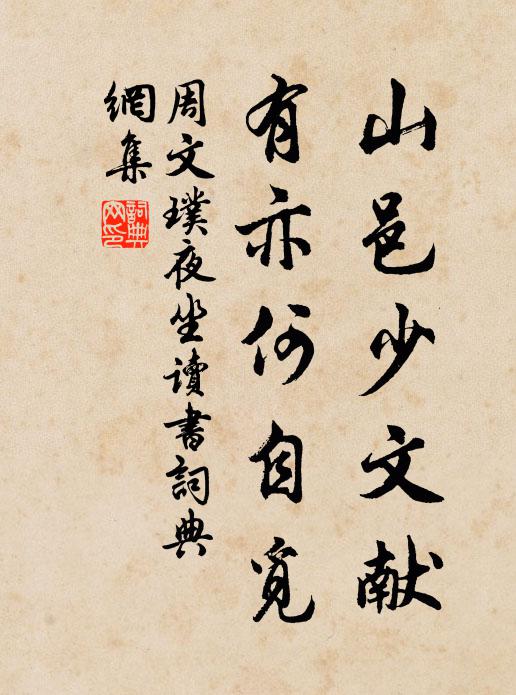 山邑少文献
有亦何自覓
周文璞夜坐讀書詞典
網集
詞典
网印